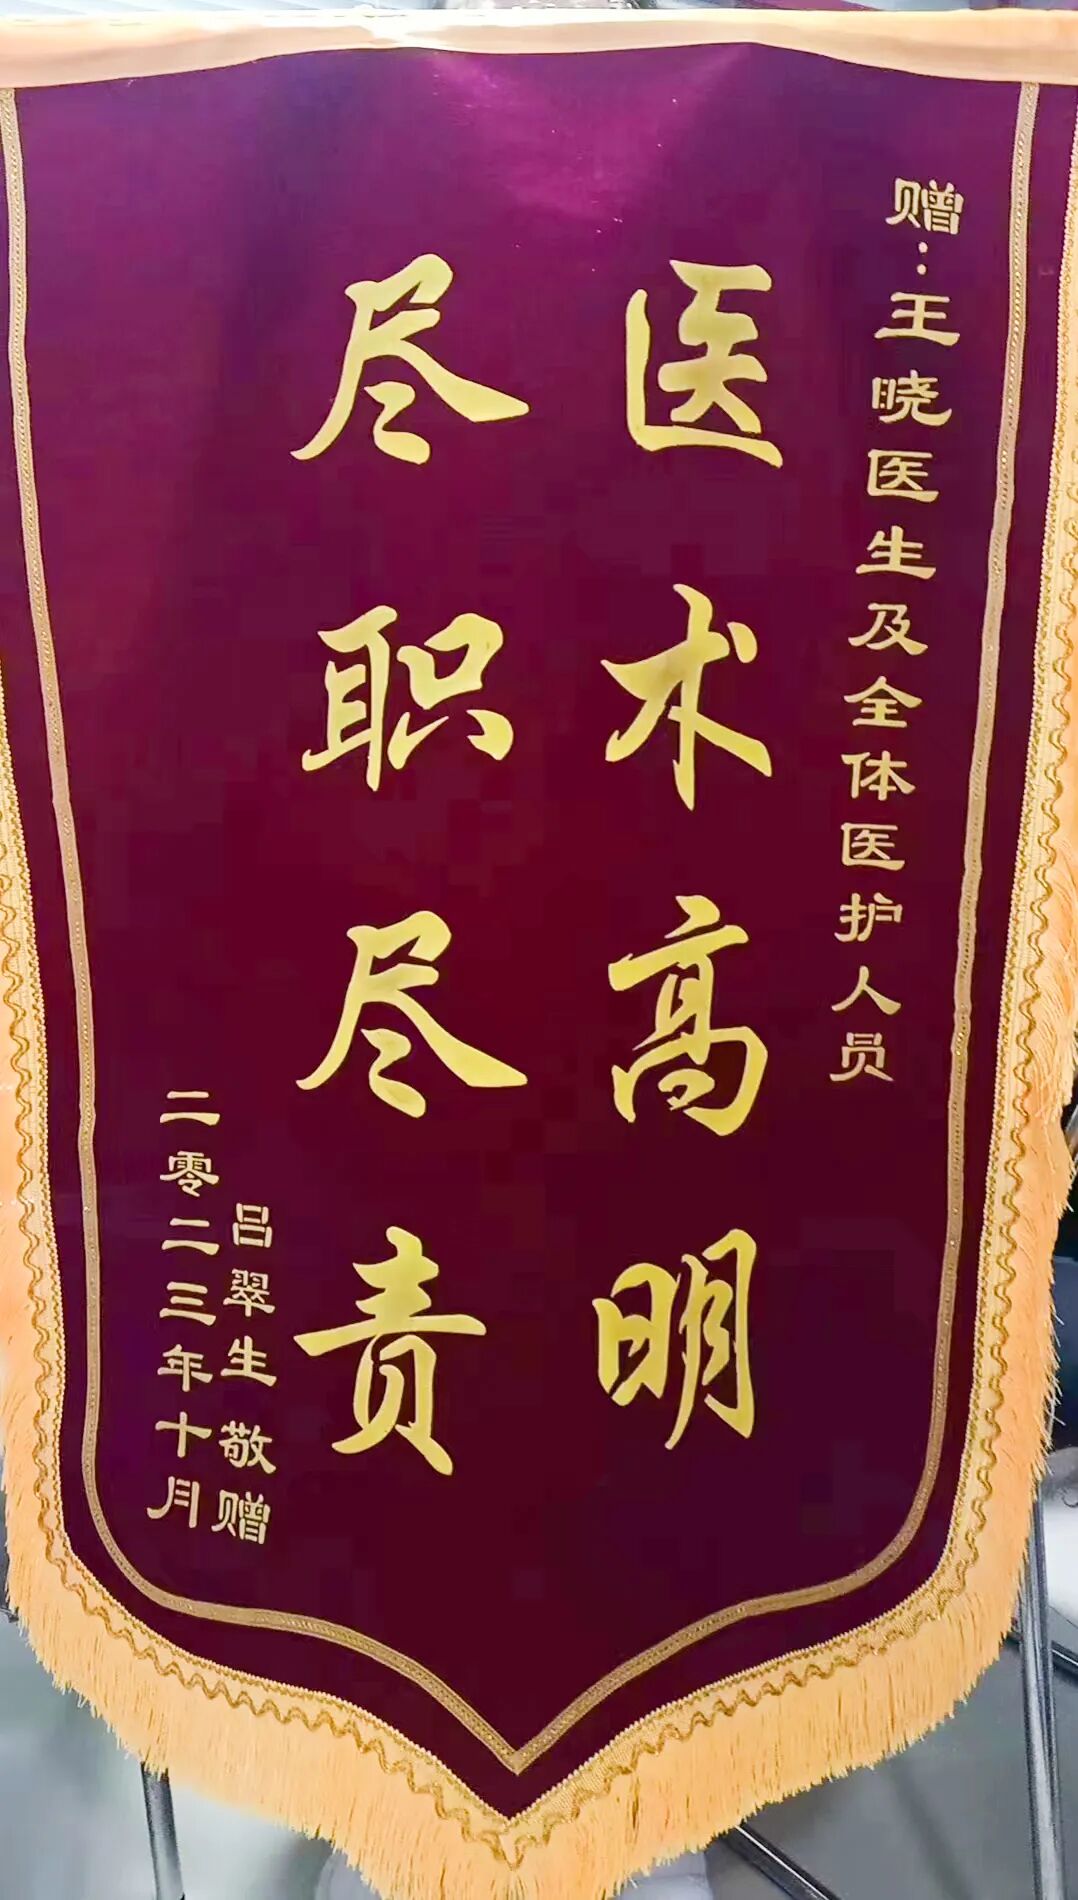 赠：王晓医生及全体医护人员
医术高明
尽职尽责
吕翠生 敬赠
二零二三年十月